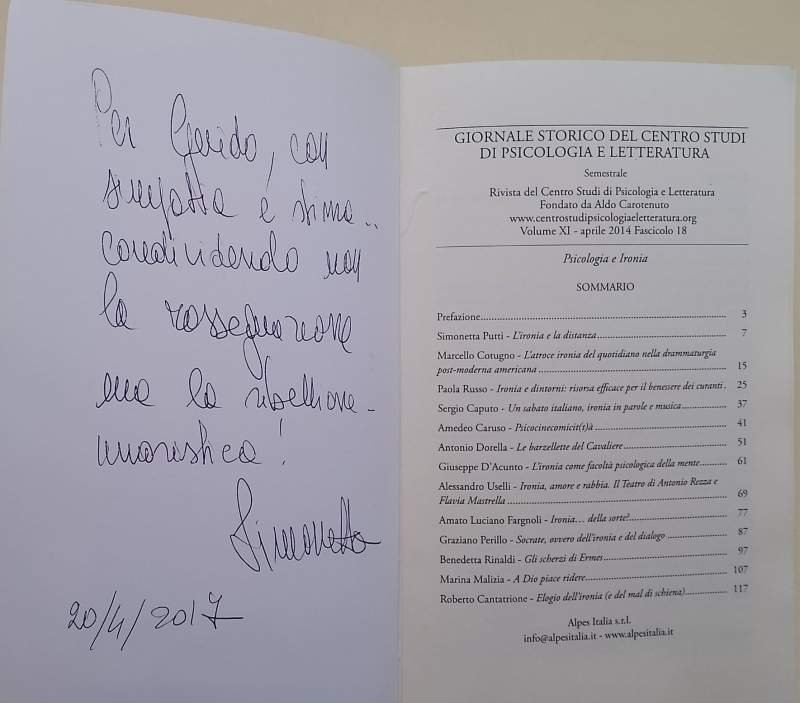 Per Guido, con
simpatia e stima..
condividendo non
la rassegnazione
ma la ribellione
umoristica!
Simonetta
20/4/2017
GIORNALE STORICO DEL CENTRO STUDI
DI PSICOLOGIA E LETTERATURA
Semestrale
Rivista del Centro Studi di Psicologia e Letteratura
Fondato da Aldo Carotenuto
www.centrostudipsicologiaeletteratura.org
Volume XI - aprile 2014 Fascicolo 18
Psicologia e Ironia
SOMMARIO
Prefazione 3
Simonetta Putti - L'ironia e la distanza 7
Marcello Cotugno - L'atroce ironia del quotidiano nella drammaturgia
post-moderna americana 15
Paola Russo - Ironia e dintorni: risorsa efficace per il benessere dei curanti . 25
Sergio Caputo - Un sabato italiano, ironia in parole e musica 37
Amedeo Caruso - Psicocinecomicit(t)à 41
Antonio Dorella - Le barzellette del Cavaliere 51
Giuseppe D'Acunto - L'ironia come facoltà psicologica della mente 61
Alessandro Uselli - Ironia, amore e rabbia. Il Teatro di Antonio Rezza e
Flavia Mastrella 69
Amato Luciano Fargnoli - Ironia... della sorte? 77
Graziano Perillo - Socrate, ovvero dell'ironia e del dialogo 87
Benedetta Rinaldi - Gli scherzi di Ermes 97
Marina Malizia - A Dio piace ridere 107
Roberto Cantatrione - Elogio dell'ironia (e del mal di schiena) 117
Alpes Italia s.r.l.
info@alpesitalia.it - www.alpesitalia.it